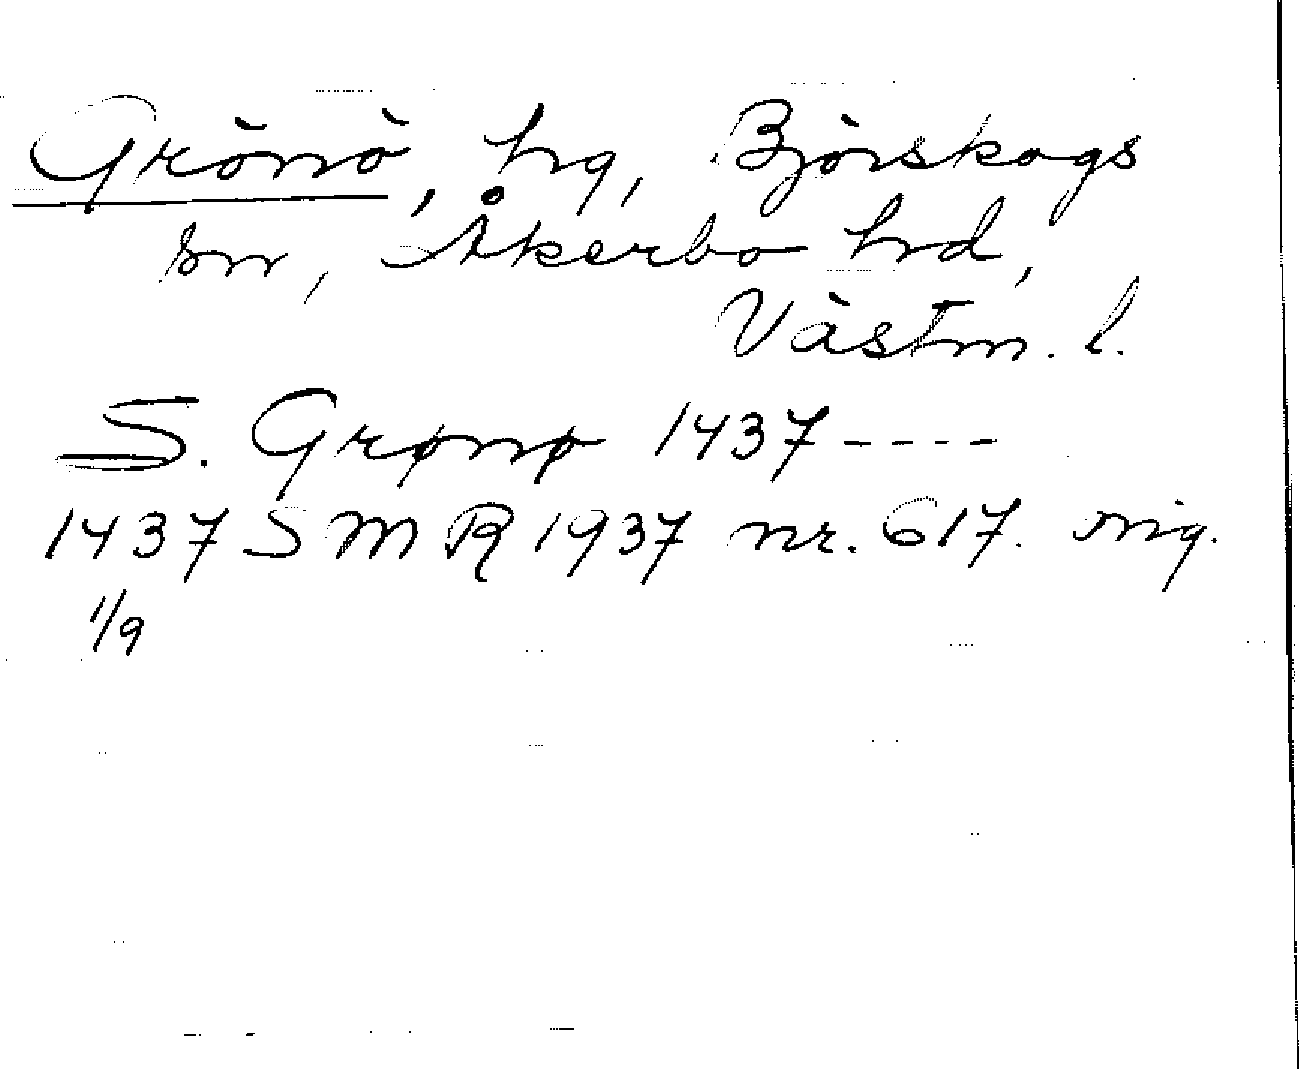 Grönö, hg, Björskogs
sn, Åkerbo hd,
Västm. l.
S. Grønø 1437----
1437 SMR 1937 nr. 617. orig.
1/9